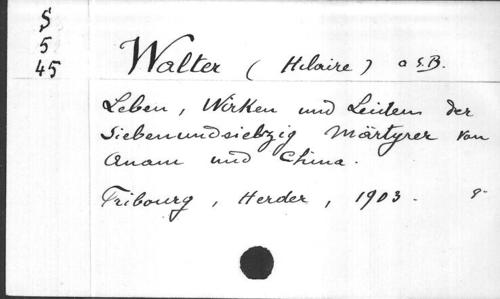 S
5
45
Walter (Hilaire) O.S.B.
Leben, Wirken und Leidem der
Siebenundsiebzig Märtyrer von
Anam und China.
Fribourg, Herder, 1903. 8°